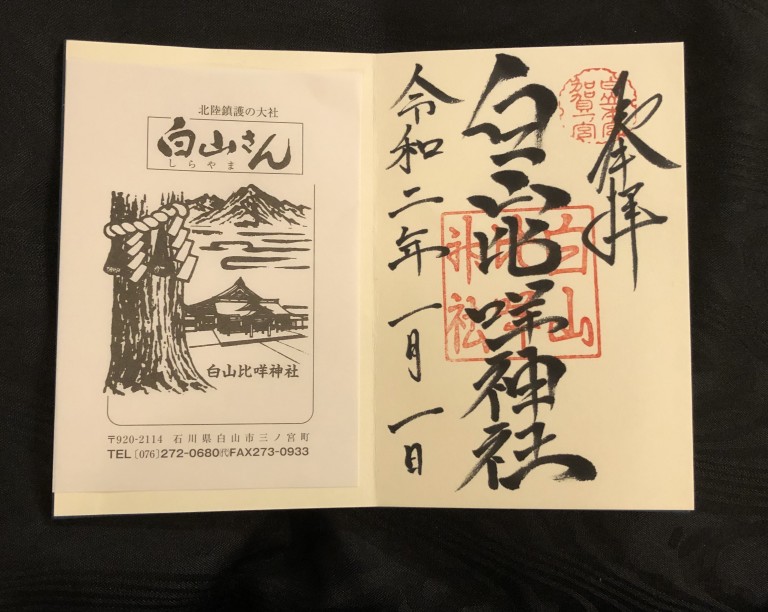 北陸鎮護の大社
白山さん
しらやま
白山比咩神社
〒920-2114 石川県白山市三ノ宮町
TEL〔076〕272-0680㈹FAX273-0933
奉拝
加賀一宮
白山比咩神社
白山
比咩
神社
令和二年一月一日